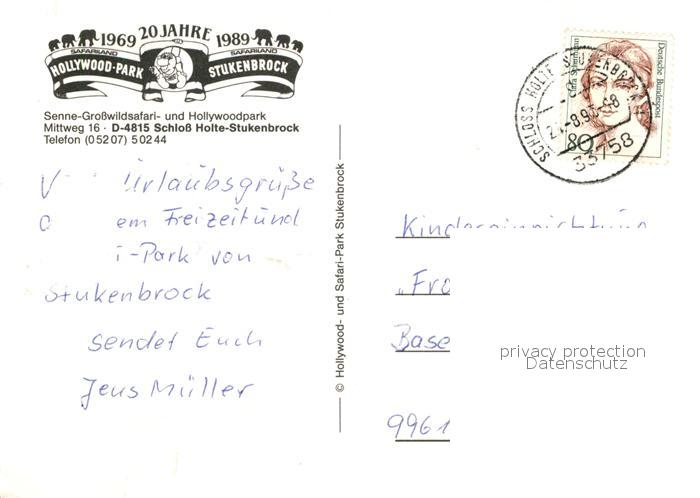 1969 20 JAHRE 1989
SAFARILAND SAFARILAND
HOLLYWOOD-PARK STUKENBROCK
Senne-Großwildsafari- und Hollywoodpark
Mittweg 16 · D-4815 Schloß Holte-Stukenbrock
Telefon (05207) 50244
V Urlaubsgrüße
em Freizeit und
i-Park von
Stukenbrock
sendet Euch
Jens Müller
© Hollywood- und Safari-Park Stukenbrock
Deutsche Bundespost
Clara Schumann
80
SCHLOSS HOLTE STUKENBROCK
33758
Kindereinrichtung
„Fro
Base
9961
privacy protection
Datenschutz